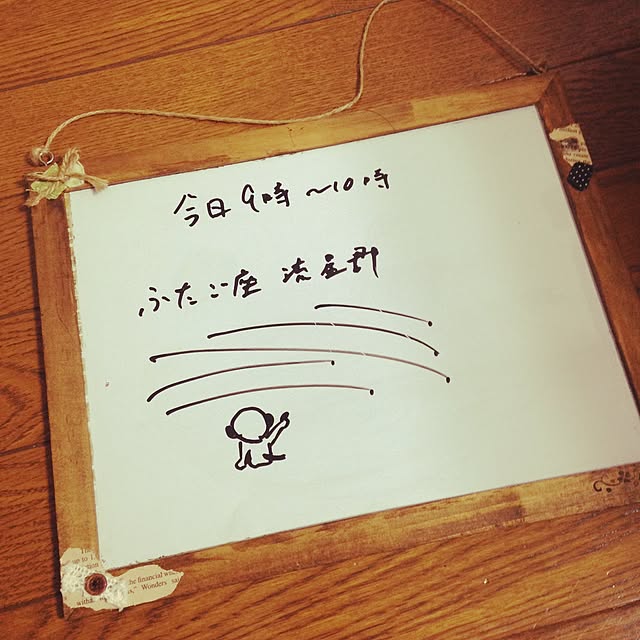 今日 9時〜10時
ふたご座 流星群
the financial w
s," Wonders sa